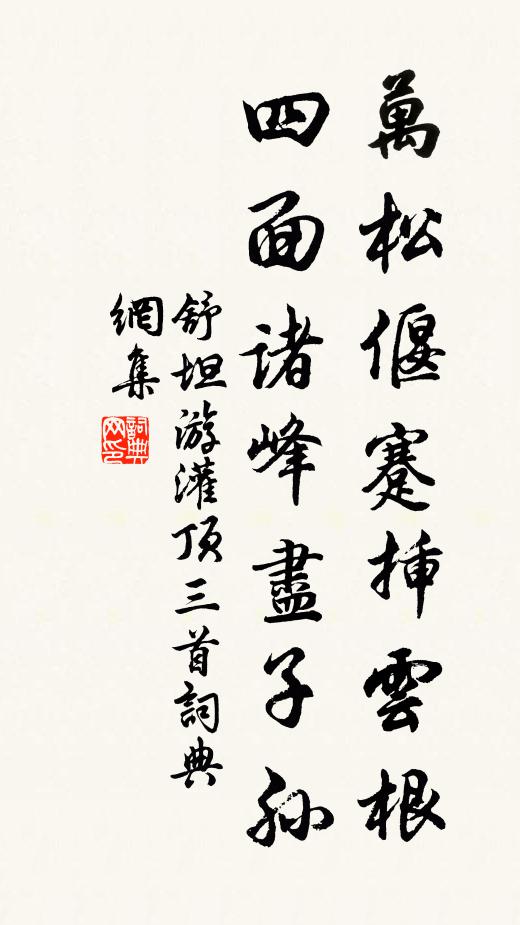 萬松偃蹇挿雲根
四面诸峰盡子孙
舒坦游灌顶三首詞典
網集
詞典网印